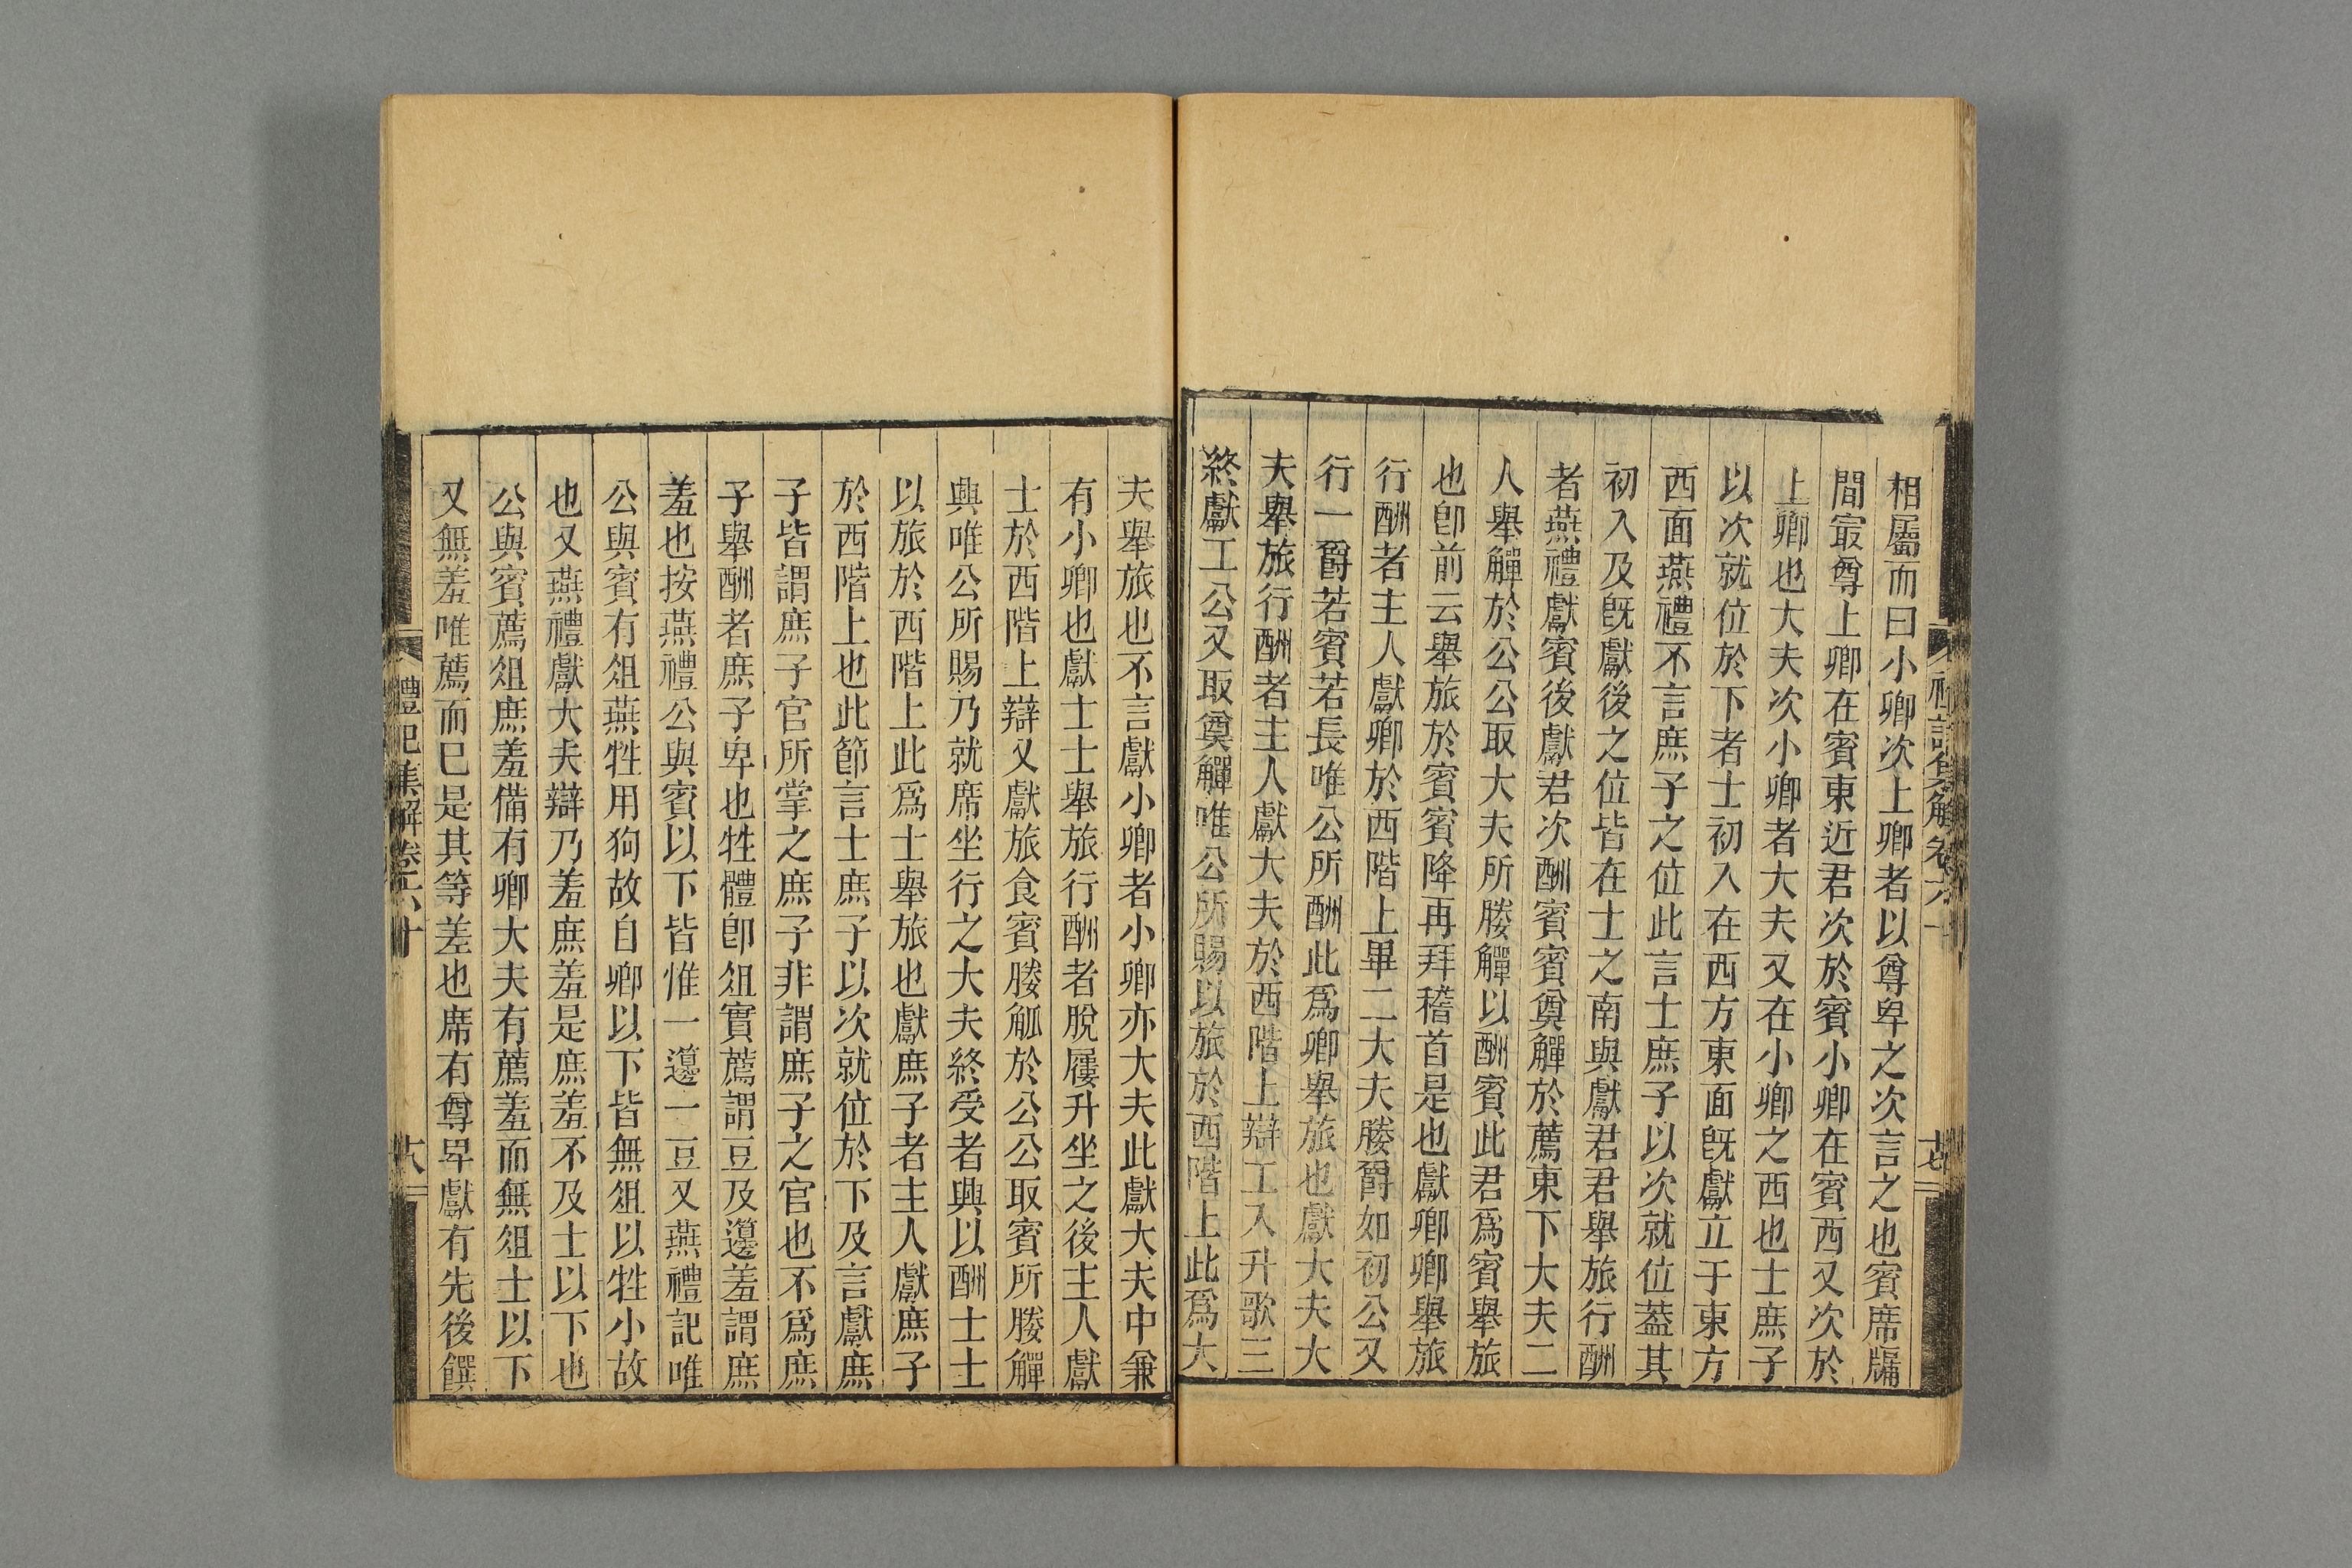 禮記集解卷六十
十七
相屬而曰小卿次上卿者以尊卑之次言之也賓席牖
間最尊上卿在賓東近君次於賓小卿在賓西又次於
上卿也大夫次小卿者大夫又在小卿之西也士庶子
以次就位於下者士初入在西方東面旣獻立于東方
西面燕禮不言庶子之位此言士庶子以次就位蓋其
初入及旣獻後之位皆在士之南與獻君君舉旅行酬
者燕禮獻賓後獻君次酬賓賓奠觶於薦東下大夫二
人舉觶於公公取大夫所媵觶以酬賓此君爲賓舉旅
也卽前云舉旅於賓賓降再拜稽首是也獻卿卿舉旅
行酬者主人獻卿於西階上畢二大夫媵爵如初公又
行一爵若賓若長唯公所酬此爲卿舉旅也獻大夫大
夫舉旅行酬者主人獻大夫於西階上辯工入升歌三
終獻工公又取奠觶唯公所賜以旅於西階上此爲大
夫舉旅也不言獻小卿者小卿亦大夫此獻大夫中兼
有小卿也獻士士舉旅行酬者脫屨升坐之後主人獻
士於西階上辯又獻旅食賓媵觚於公公取賓所媵觶
興唯公所賜乃就席坐行之大夫終受者興以酬士士
以旅於西階上此爲士舉旅也獻庶子者主人獻庶子
於西階上也此節言士庶子以次就位於下及言獻庶
子皆謂庶子官所掌之庶子非謂庶子之官也不爲庶
子舉酬者庶子卑也牲體卽俎實薦謂豆及籩羞謂庶
羞也按燕禮公與賓以下皆惟一籩一豆又燕禮記唯
公與賓有俎燕牲用狗故自卿以下皆無俎以牲小故
也又燕禮獻大夫辯乃羞庶羞是庶羞不及士以下也
公與賓薦俎庶羞備有卿大夫有薦羞而無俎士以下
又無羞唯薦而已是其等差也席有尊卑獻有先後饌
禮記集解卷六十
十八